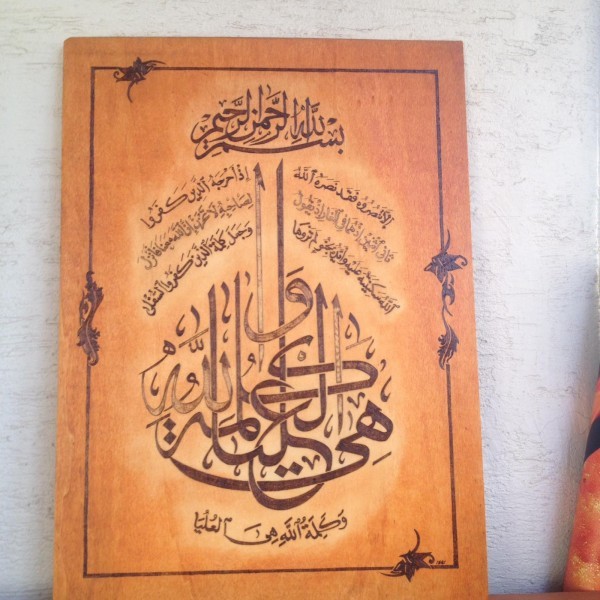 بسم الله الرحمن الرحيم
إلا تنصروه فقد نصره الله إذ أخرجه الذين كفروا
ثاني اثنين إذ هما في الغار إذ يقول لصاحبه لا تحزن إن الله معنا فأنزل
الله سكينته عليه وأيده بجنود لم تروها وجعل كلمة الذين كفروا السفلى
وكلمة الله هي العليا
وَكَلِمَةُ اللَّهِ هِيَ العُلْيَا